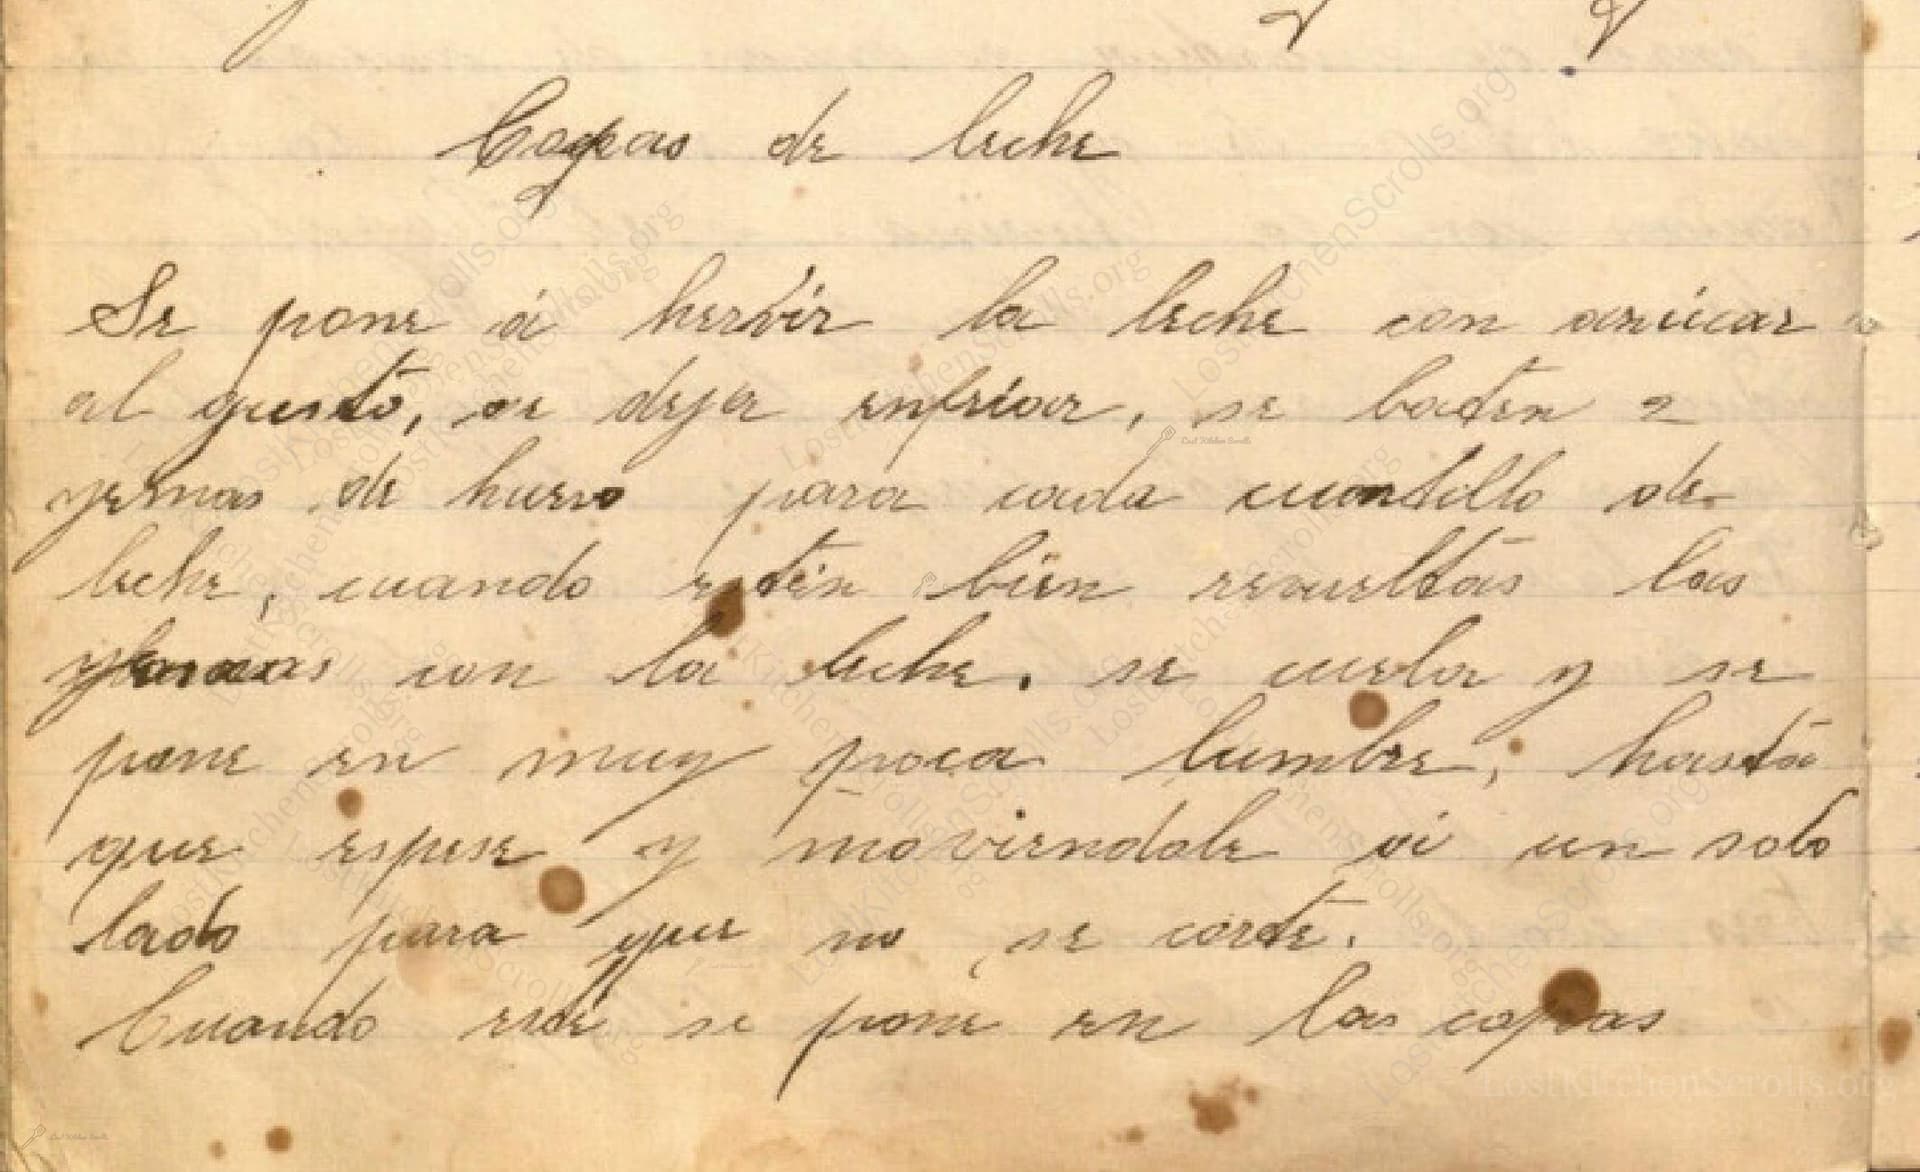 Copas de leche
Se pone á hervir la leche con azúcar
al gusto, se deja enfriar, se baten 2
yemas de huevo para cada cuartillo de
leche, cuando estén bien revueltas las
yemas con la leche. se cuela y se
pone en muy poca lumbre, hasta
que espese y moviendole á un solo
lado para que no se corte.
Cuando esté se pone en las copas
LostKitchenScrolls.org